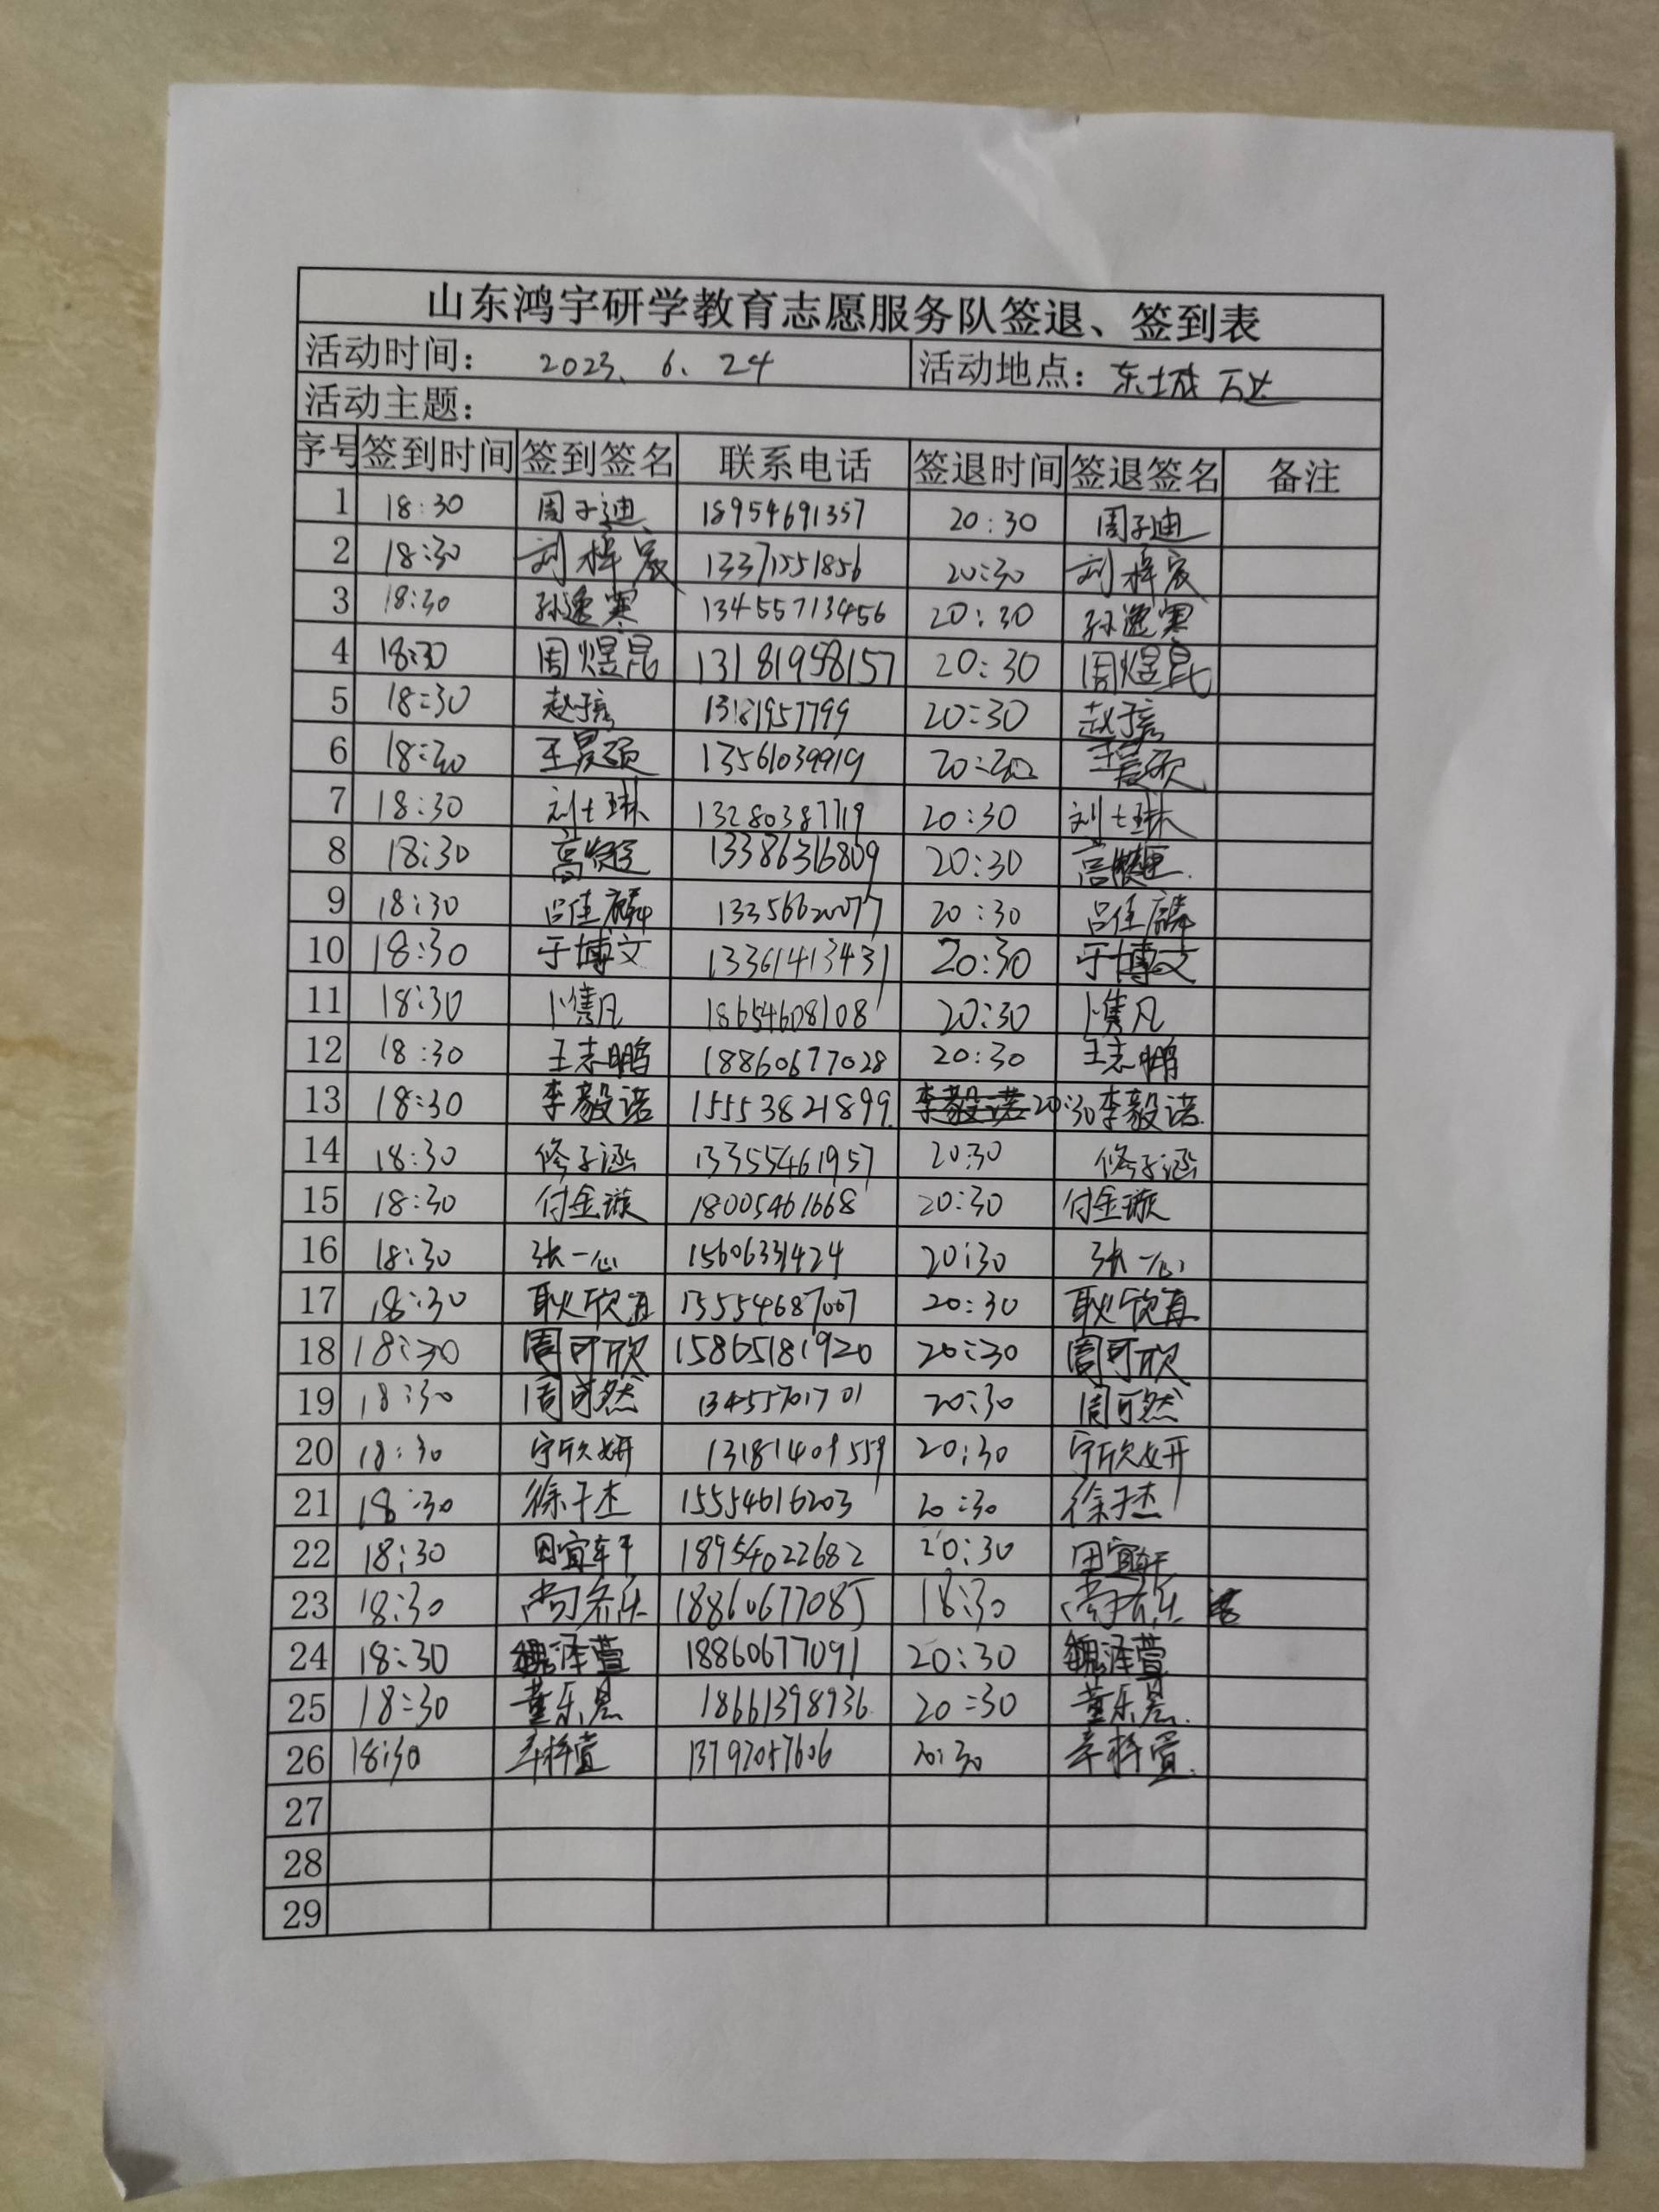 山东鸿宇研学教育志愿服务队签退、签到表
活动时间： 2023. 6. 24 活动地点：东城万达
活动主题：
序号 签到时间 签到签名 联系电话 签退时间 签退签名 备注
1 18:30 周子迪 18954691357 20:30 周子迪
2 18:30 刘梓宸 13371551856 20:30 刘梓宸
3 18:30 孙逸寒 13455713456 20:30 孙逸寒
4 18:30 周煜昆 13181958157 20:30 周煜昆
5 18:30 赵 13181957799 20:30 赵
6 18:30 王昊硕 13561039919 20:30 王昊硕
7 18:30 刘士琳 13280387719 20:30 刘士琳
8 18:30 高 13386316809 20:30 高
9 18:30 吕佳麟 13356620077 20:30 吕佳麟
10 18:30 于博文 13361413431 20:30 于博文
11 18:30 卜隽凡 18654608108 20:30 卜隽凡
12 18:30 王志鹏 18860677028 20:30 王志鹏
13 18:30 李毅诺 15553821899 李毅诺 20:30 李毅诺
14 18:30 修子涵 13355461957 20:30 修子涵
15 18:30 付金璇 18005461668 20:30 付金璇
16 18:30 张一心 15606331424 20:30 张一心
17 18:30 耿欣直 15554687007 20:30 耿欣直
18 18:30 周可欣 15865181920 20:30 周可欣
19 18:30 周可然 13455701701 20:30 周可然
20 18:30 宁欣妍 13181409559 20:30 宁欣妍
21 18:30 徐子杰 15554616203 20:30 徐子杰
22 18:30 田宜轩 18954022682 20:30 田宜轩
23 18:30 尚乐 18860677085 18:30 尚乐
24 18:30 魏泽萱 18860677091 20:30 魏泽萱
25 18:30 董乐晨 18661398936 20:30 董乐晨
26 18:30 辛梓萱 13792057606 20:30 辛梓萱
27
28
29